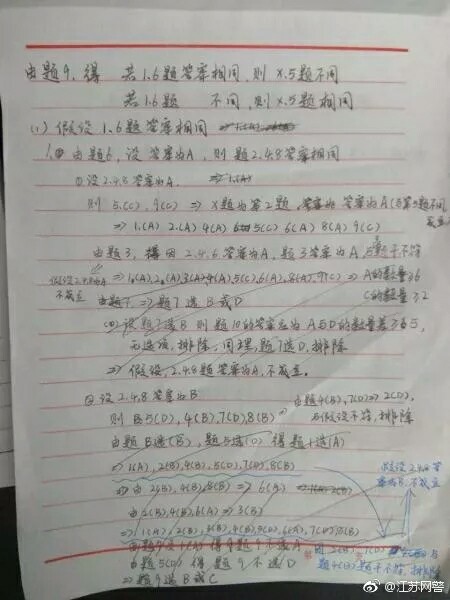 由题9,得 若1.6题答案相同,则X.5题不同
若1.6题 不同,则X.5题相同
(1)假设1.6题答案相同
1.① 由题6,设答案为A,则题2.4.8答案相同
①设2.4.8答案为A. ⇒ 1.(A)
则5.(C),9(C) ⇒ X题为第2题,答案为A
⇒ 1.(A) 2.(A) 4(A) 5(C) 6(A) 8(A) 9(C)
由题3,得因2.4.6答案为A,题3答案为A,与题干不符
假设2.4.8为A不成立
⇒ 1(A),2(A) 3(A) 4(A) 5(C),6(A),8(A),9(C) ⇒ A的数量≥6
由题7 ⇒ 题7选B或D C的数量≥2
设题7选B 则题10的答案应为A与D的数量差≥5,
无选项,排除,同理,题7选D,排除
⇒ 假设,2.4.8题答案为A,不成立.
②设2.4.8答案为B 由题4(B),7(D) ⇒ 2(D),
则5(D),4(B),7(D) 8(B) 与假设不符,排除
由题8选(B),题5选(D) 得题1选(A)
⇒ 1(A),2(B),4(B),5(D),7(D),8(B)
⇒ 由2(B),4(B),8(B) ⇒ 6(A)
由2(B),4(B),6(A) ⇒ 3(B)
⇒ 1(A),2(B),3(B),4(B),5(D),6(A),7(D),8(B)
假设2.4.8答案为B,不成立
由题5(D) 得题9不选D
⇒ 题9选B或C
题4(B)题干不符,排除
@江苏网警